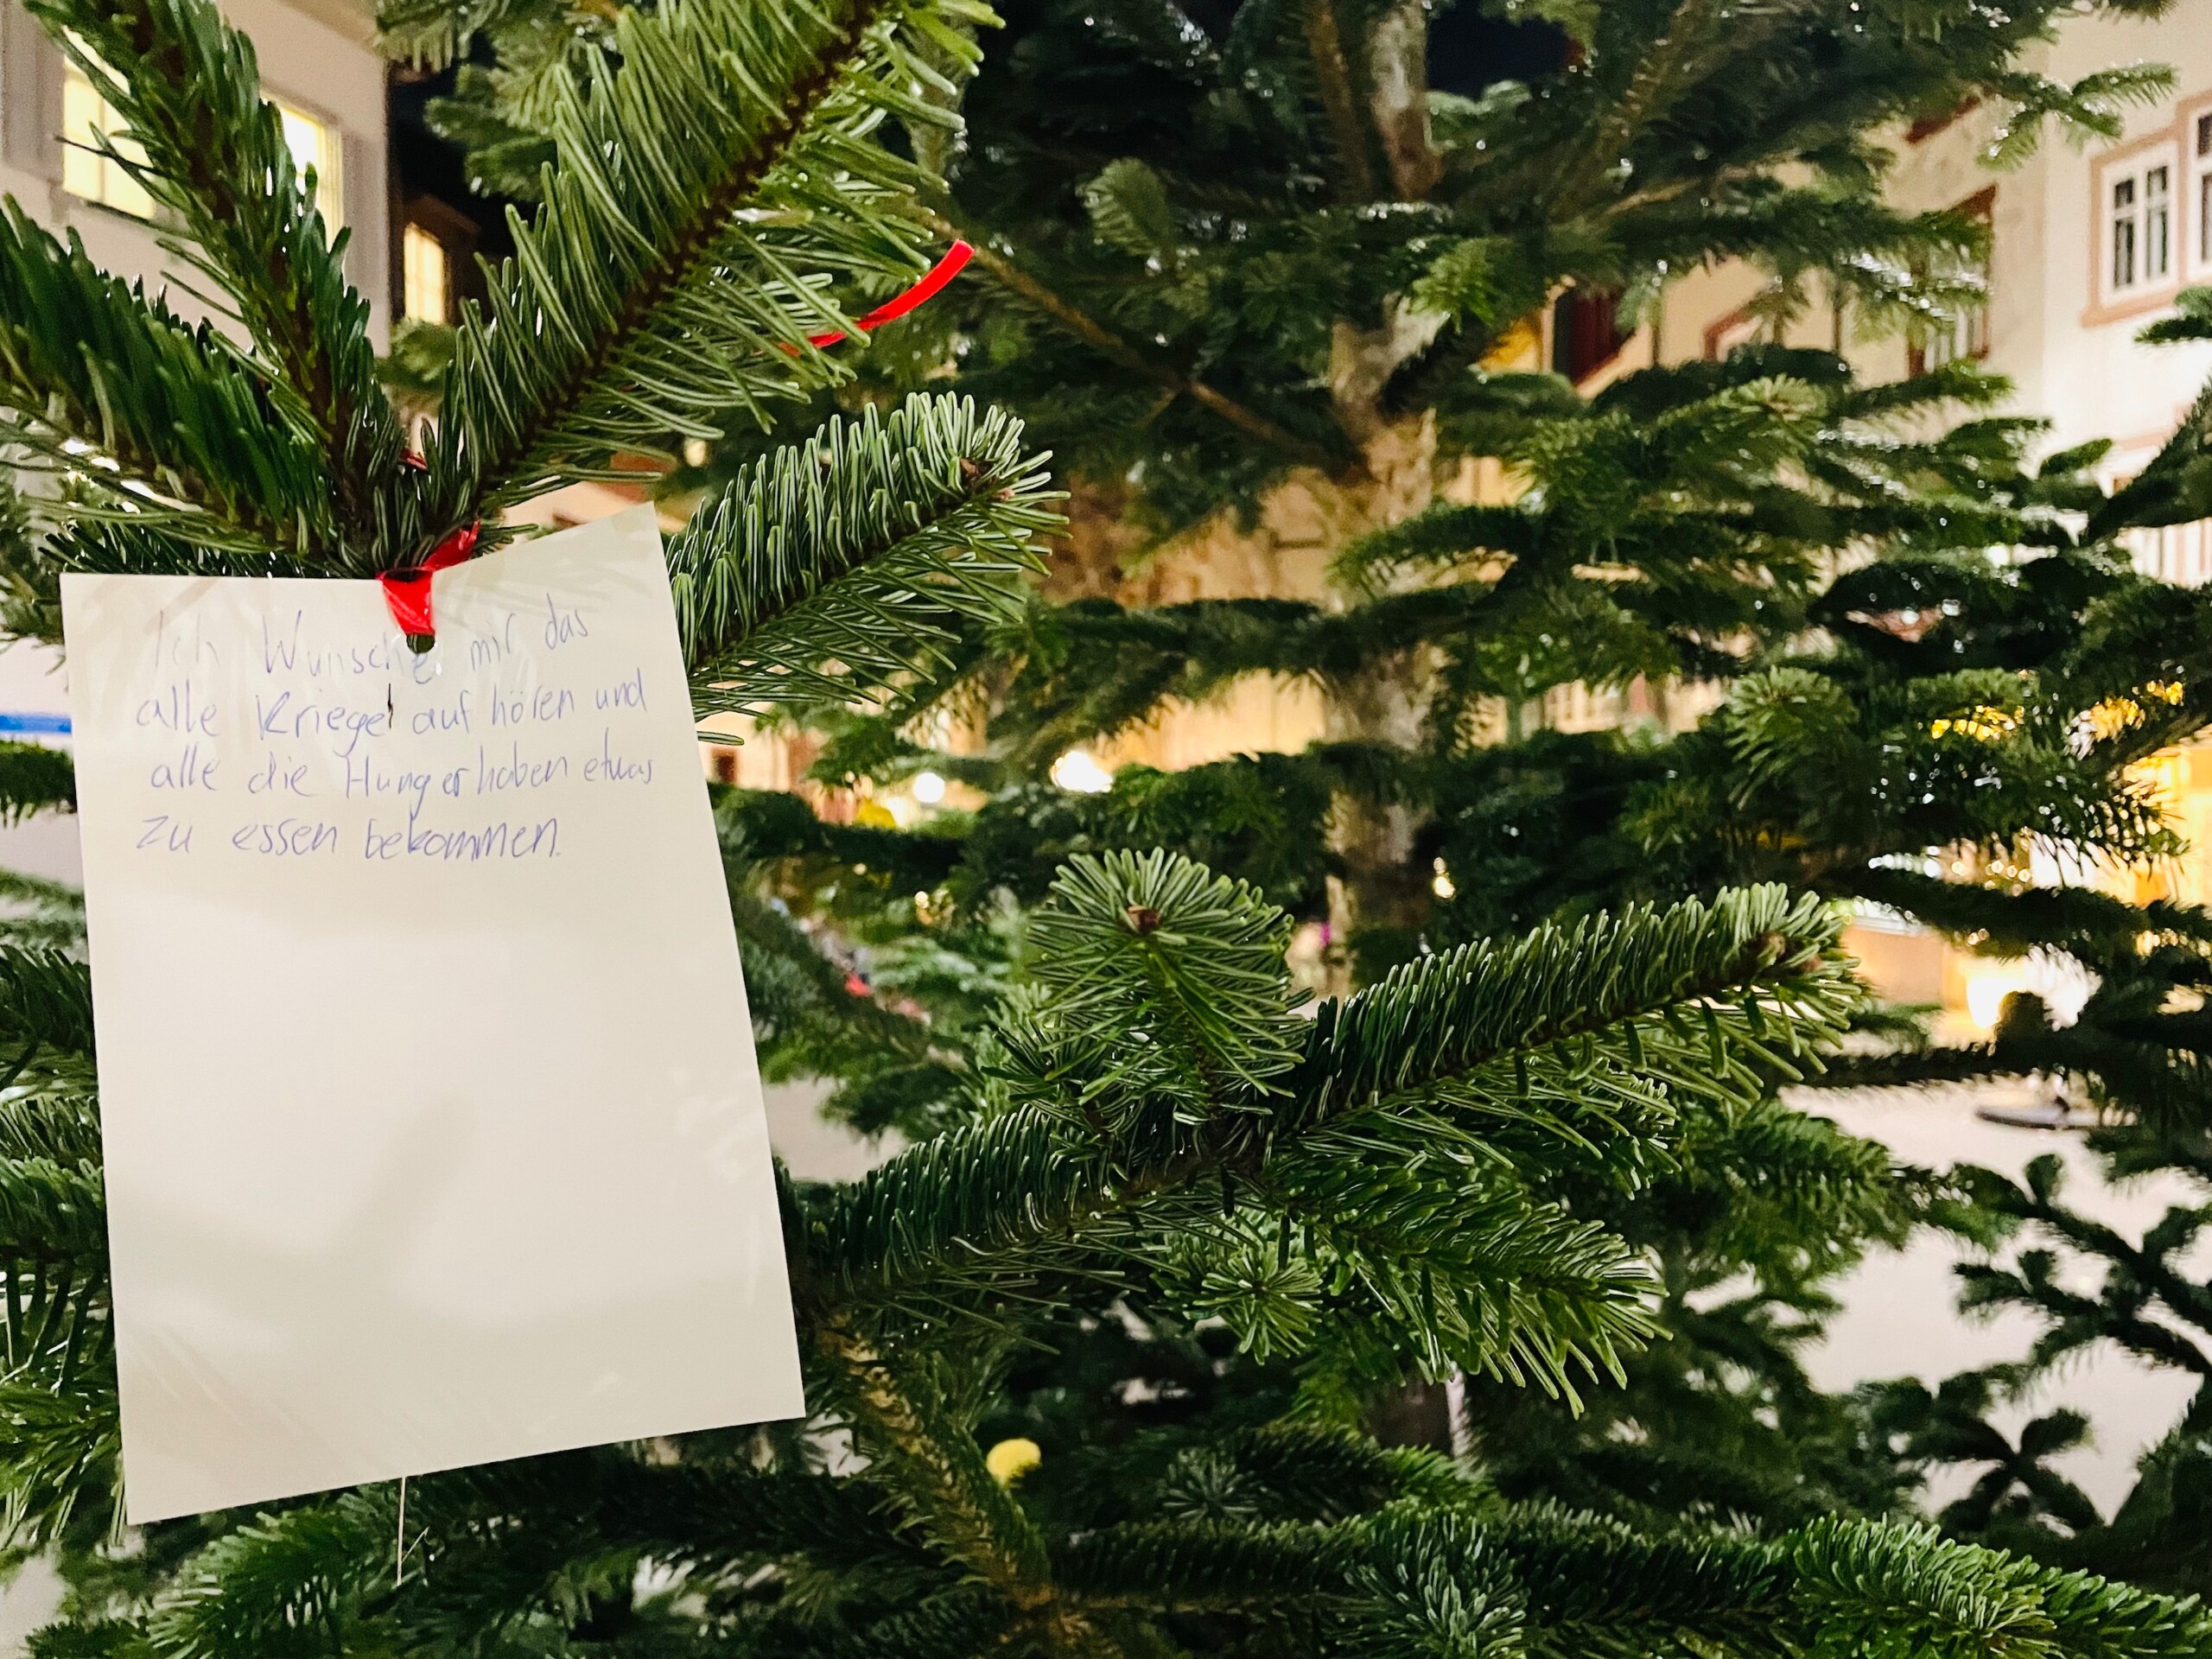 Ich Wünsche mir das
alle Kriege auf hören und
alle die Hunger haben etwas
zu essen bekommen.